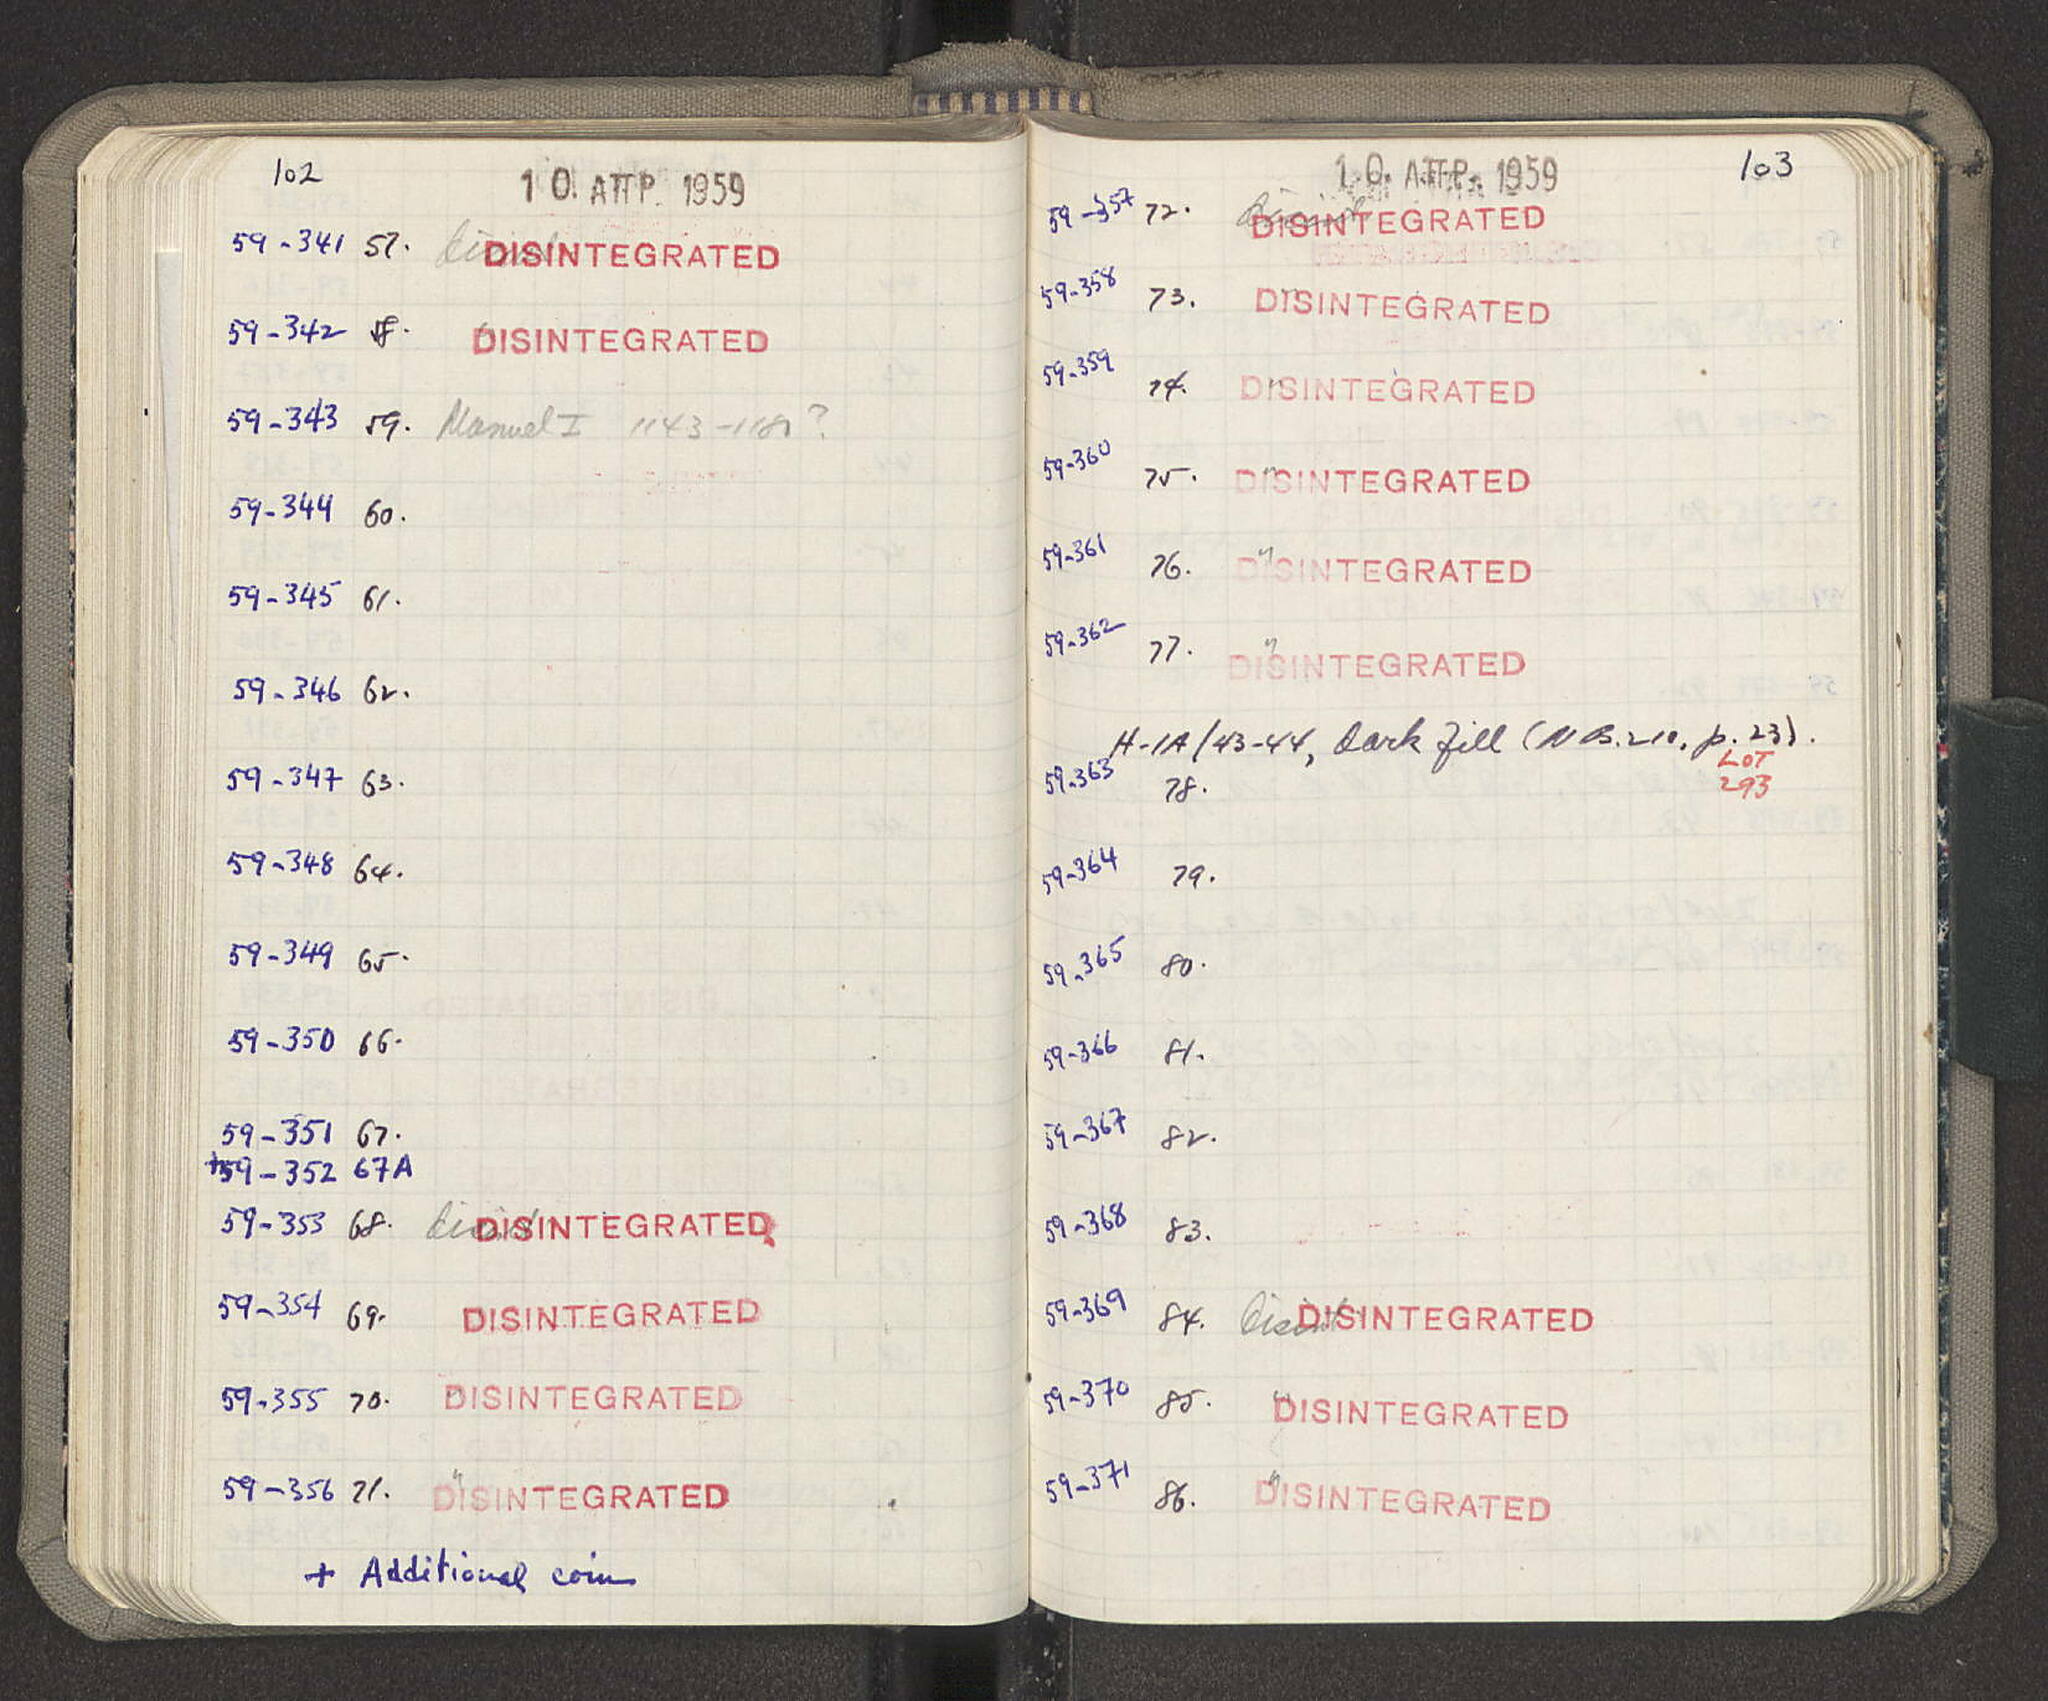 102
10. ΑΠΡ. 1959
59-341 57. DISINTEGRATED
59-342 58. DISINTEGRATED
59-343 59. Manuel I 1143-1180?
59-344 60.
59-345 61.
59-346 62.
59-347 63.
59-348 64.
59-349 65.
59-350 66.
59-351 67.
+59-352 67A
59-353 68. DISINTEGRATED
59-354 69. DISINTEGRATED
59-355 70. " DISINTEGRATED
59-356 71. " DISINTEGRATED
+ Additional coin
103
10. ΑΠΡ. 1959
59-357 72. DISINTEGRATED
59-358 73. " DISINTEGRATED
59-359 74. " DISINTEGRATED
59-360 75. " DISINTEGRATED
59-361 76. " DISINTEGRATED
59-362 77. " DISINTEGRATED
H-1A/43-44, Dark fill (NB.210, p.23).
LOT
293
59-363 78.
59-364 79.
59-365 80.
59-366 81.
59-367 82.
59-368 83.
59-369 84. Disint. DISINTEGRATED
59-370 85. " DISINTEGRATED
59-371 86. " DISINTEGRATED